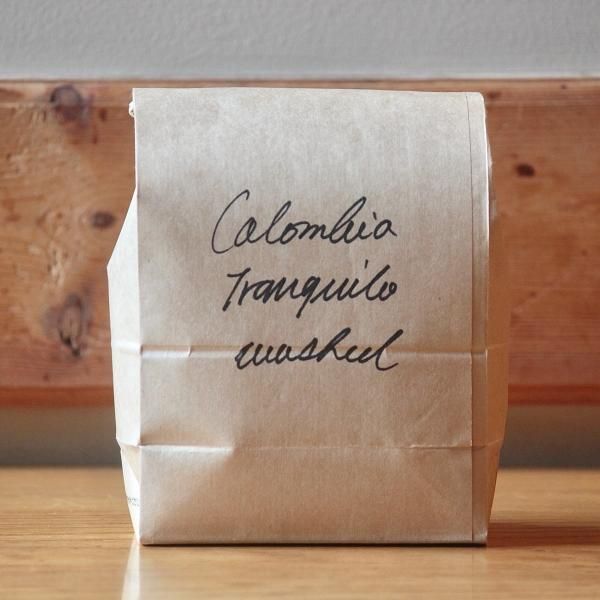 Colombia
Tranquilo
washed